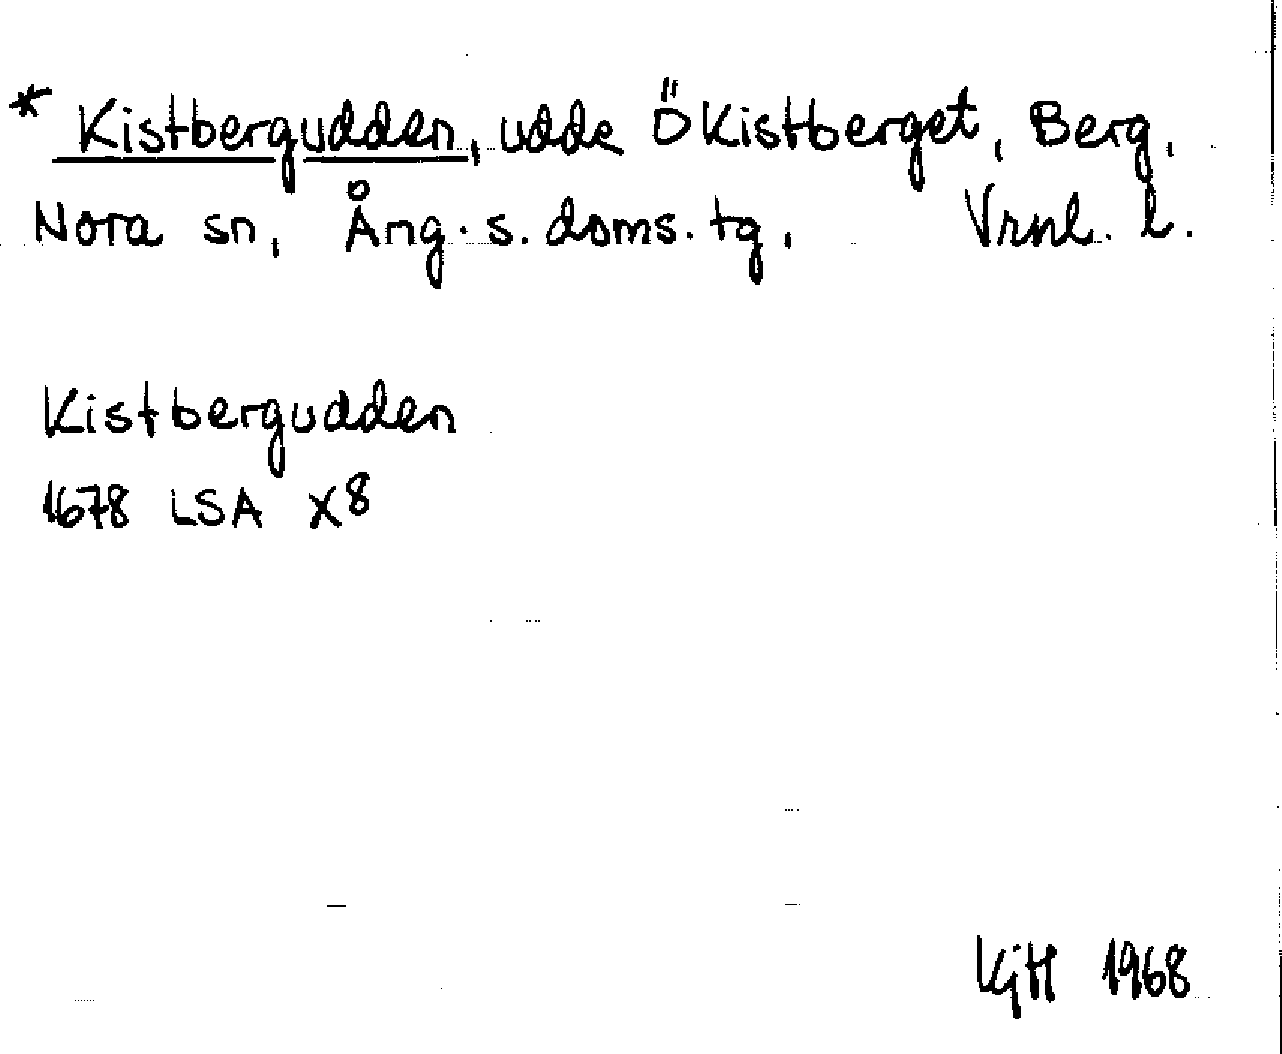 * Kistbergudden, udde Ö Kistberget, Berg,
Nora sn, Ång. s. doms. tg, Vrnl. l.
Kistbergudden
1678 LSA X8
KjH 1968